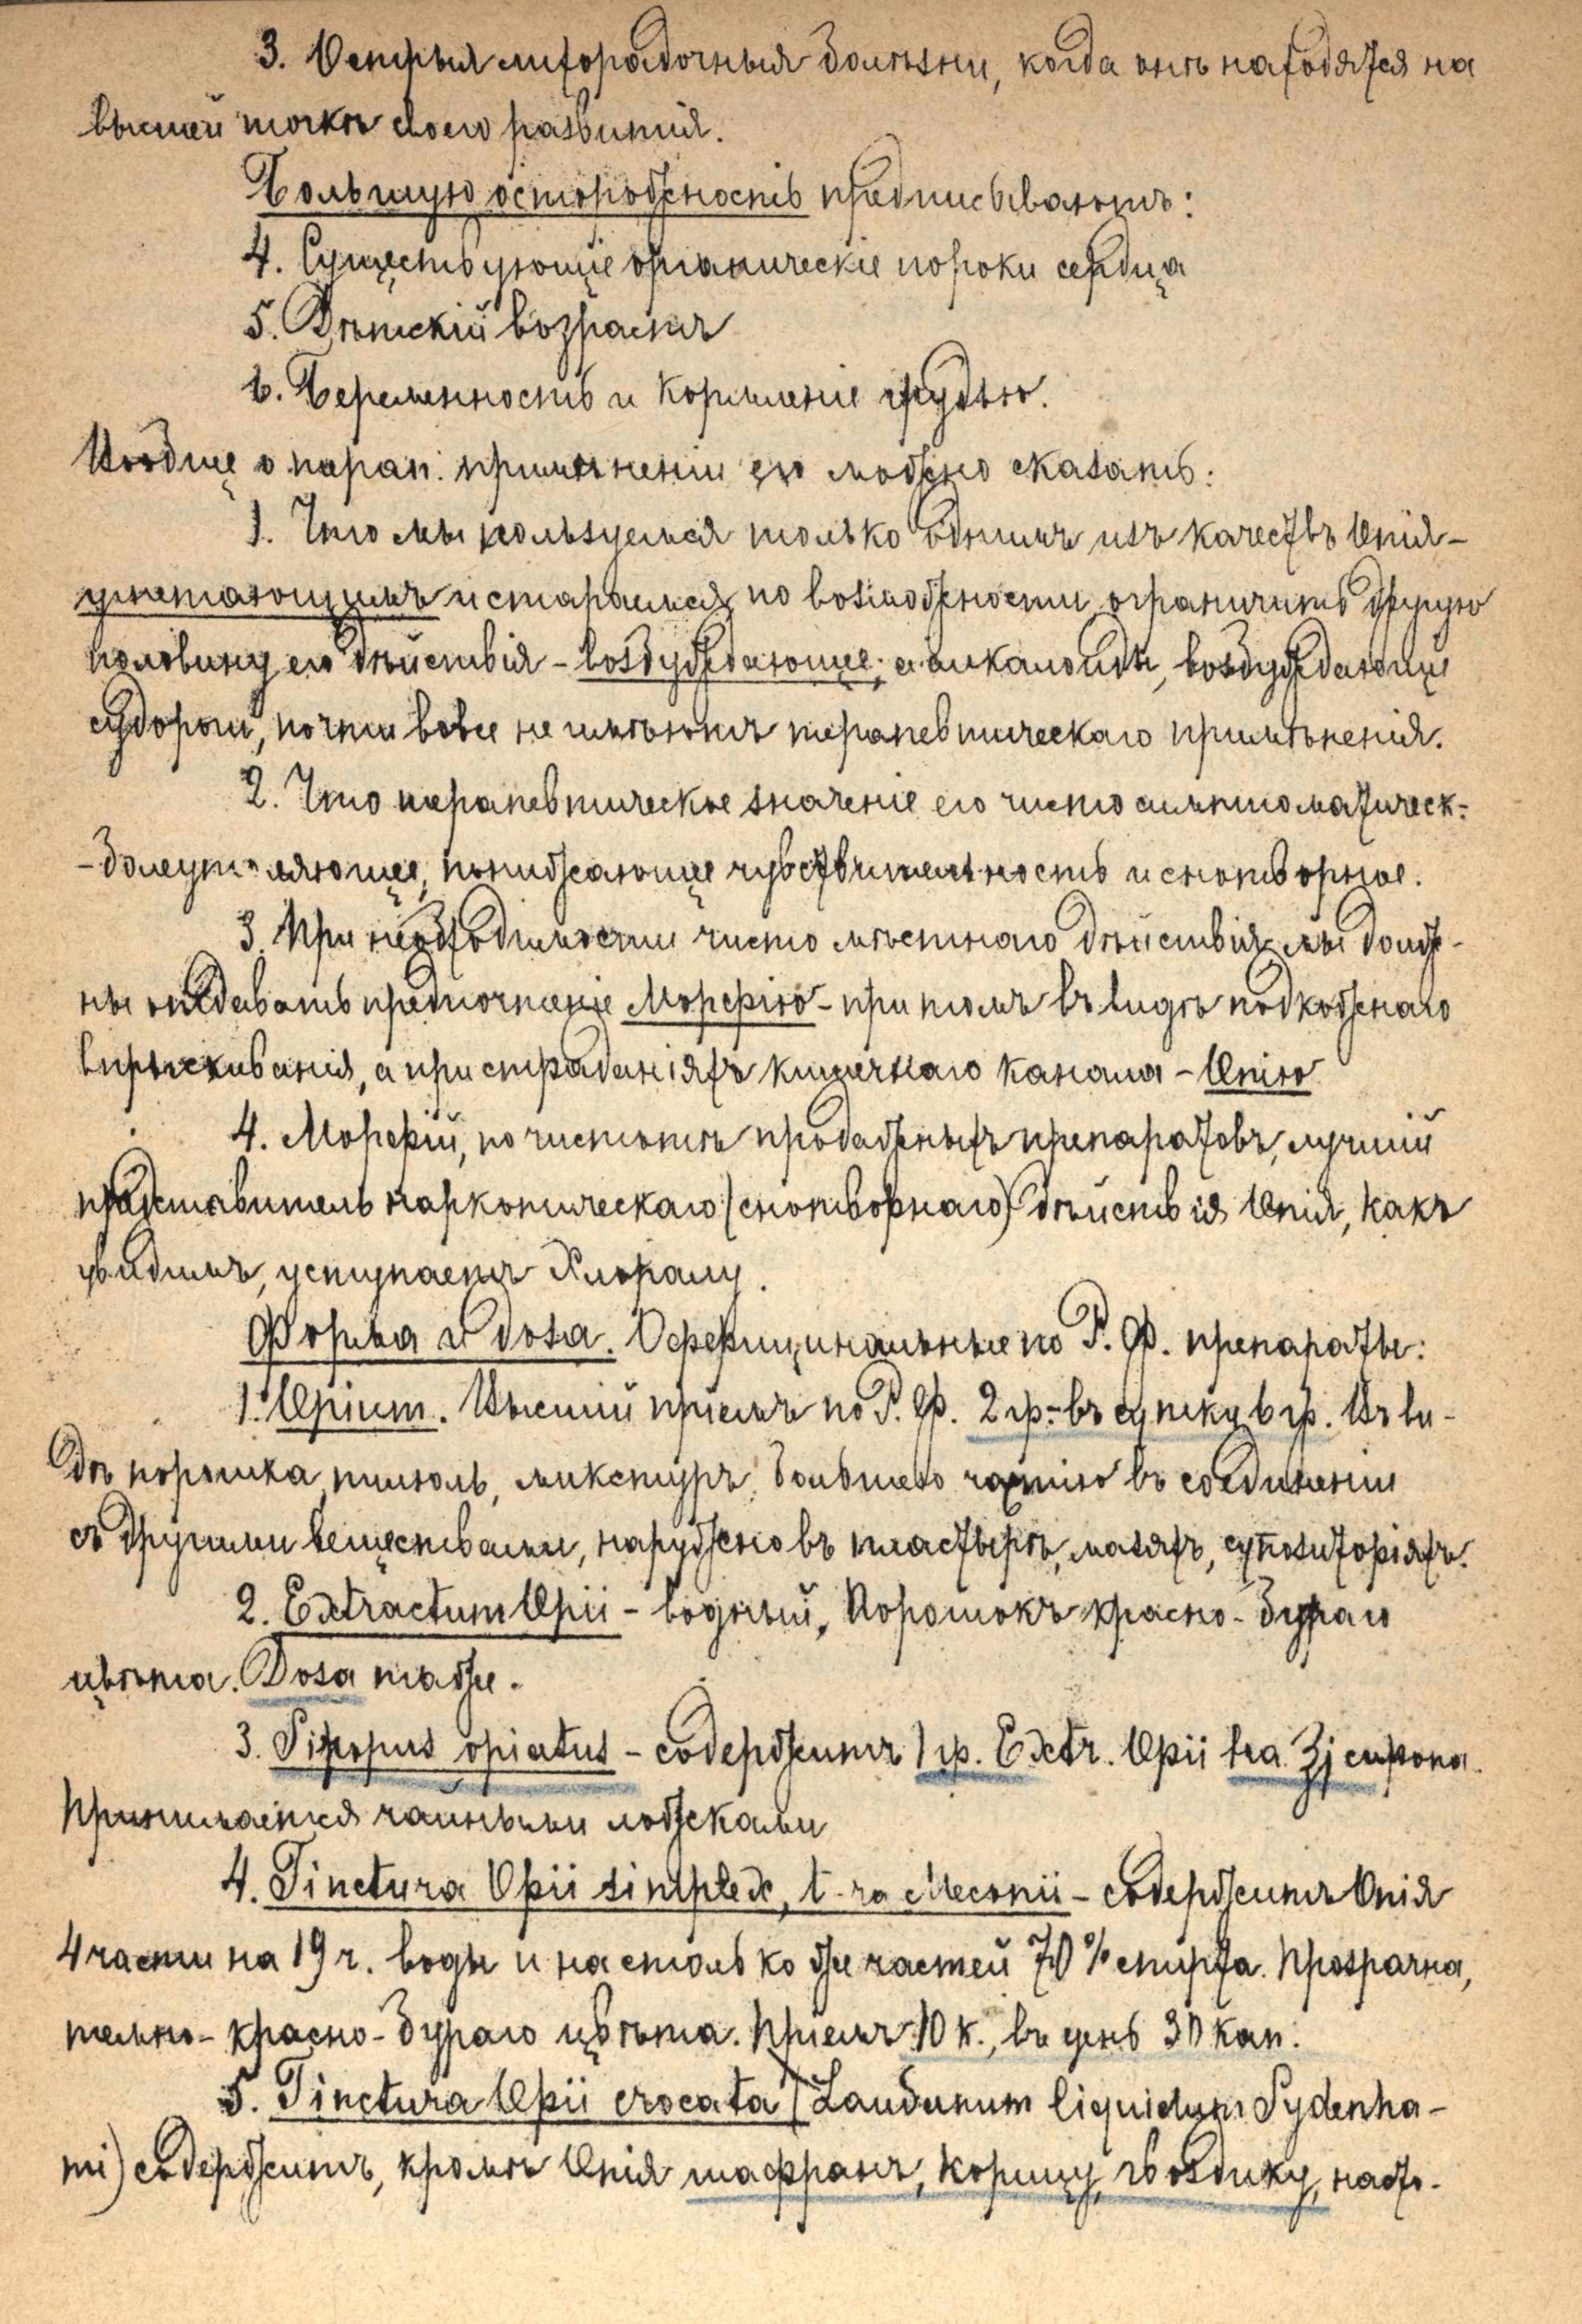 3. Острыя лихорадочныя болѣзни, когда онѣ находятся на
высшей точкѣ своего развитія.
Большую осторожность предписываютъ:
4. Существующіе органическіе пороки сердца
5. Дѣтскій возрастъ
6. Беременность и кормленіе грудью.
Вообще о терап. примѣненіи его можно сказать:
1. Что мы пользуемся только однимъ изъ качествъ Опія-
угнетающимъ и стараемся, по возможности ограничить другую
половину его дѣйствія - возбуждающее; а алкалоиды, возбуждающіе
судороги, почти вовсе не имѣютъ терапевтическаго примѣненія.
2. Что терапевтическое значеніе его чисто симптоматическ-
-болеутоляющее, понижающее чувствительность и снотворное.
3. При необходимости чисто мѣстнаго дѣйствія мы долж-
ны отдавать предпочтеніе Морфію - при томъ въ видѣ подкожнаго
впрыскиванія, а при страданіяхъ кишечнаго канала - Опію
4. Морфій, по чистотѣ продажныхъ препаратовъ, лучшій
представитель наркотическаго (снотворнаго) дѣйствія Опія, какъ
увидимъ, уступаетъ Хлоралу.
Форма и доза. Оффицинальные по Р. Ф. препараты:
1. Opium. Высшій пріемъ по Р. Ф. 2 гр.- въ сутки 6 гр. Въ ви-
дѣ порошка, пилюль, микстуръ, большею частію въ соединеніи
съ другими веществами, наружно въ пластырѣ, мазяхъ, супозиторіяхъ.
2. Extractum Opii - водный, Порошокъ красно-бураго
цвѣта. Доза таже.
3. Siropus opiatus - содержитъ 1 гр. Extr. Opii на ℥j сиропа.
Принимается чайными ложками
4. Tinctura Opii simplex, t-ra Meconii - содержитъ Опія
4 части на 19 ч. воды и на столько же частей 70% спирта. Прозрачна,
темно-красно-бураго цвѣта. Пріемъ 10 к., въ день 30 кап.
5. Tinctura Opii crocata (Laudanum liquidum Sydenha-
mi) содержитъ, кромѣ Опія шафранъ, корицу, гвоздику, насто-